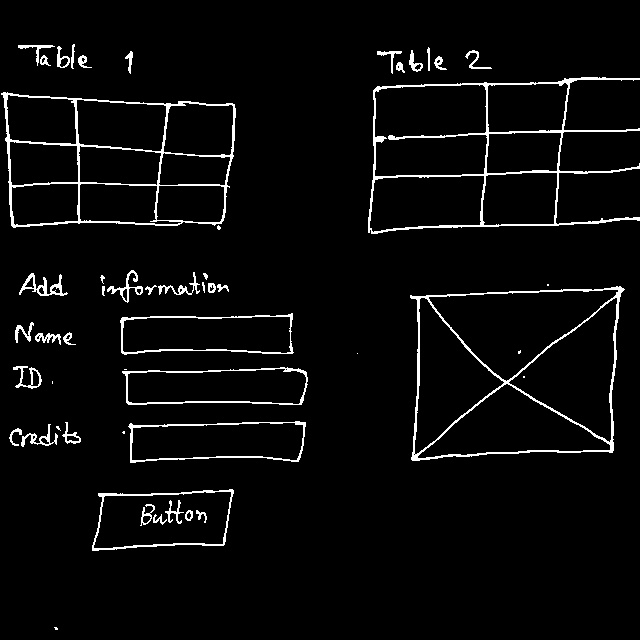 Table 1
Table 2
Add information
Name
ID.
Credits
Button